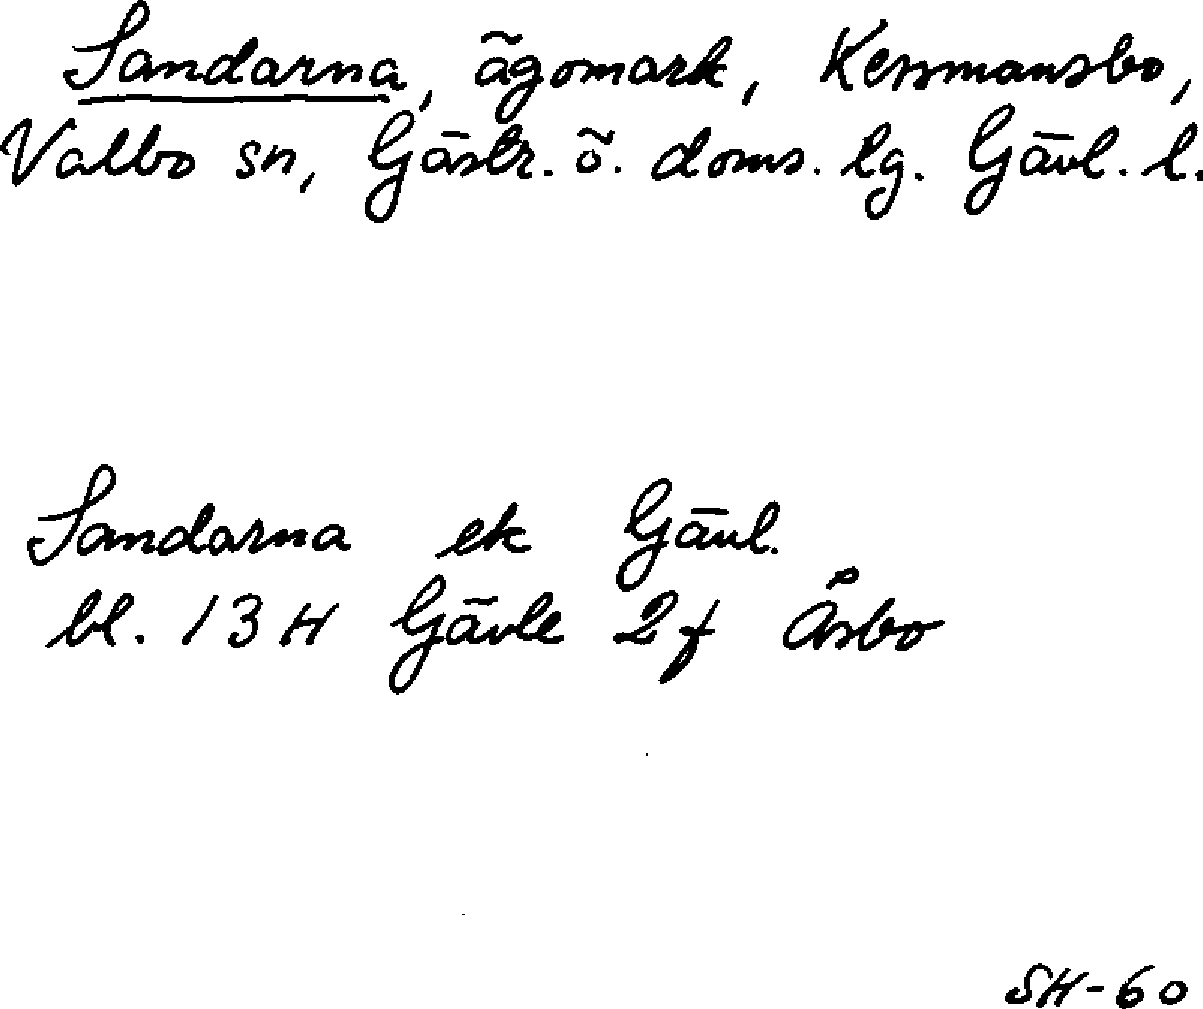 Sandarna, ägomark, Kessmansbo,
Valbo sn, Gästr. ö. doms. lg. Gävl. l.
Sandarna ek Gävl.
bl. 13 H Gävle 2 f Åsbo
SH-60